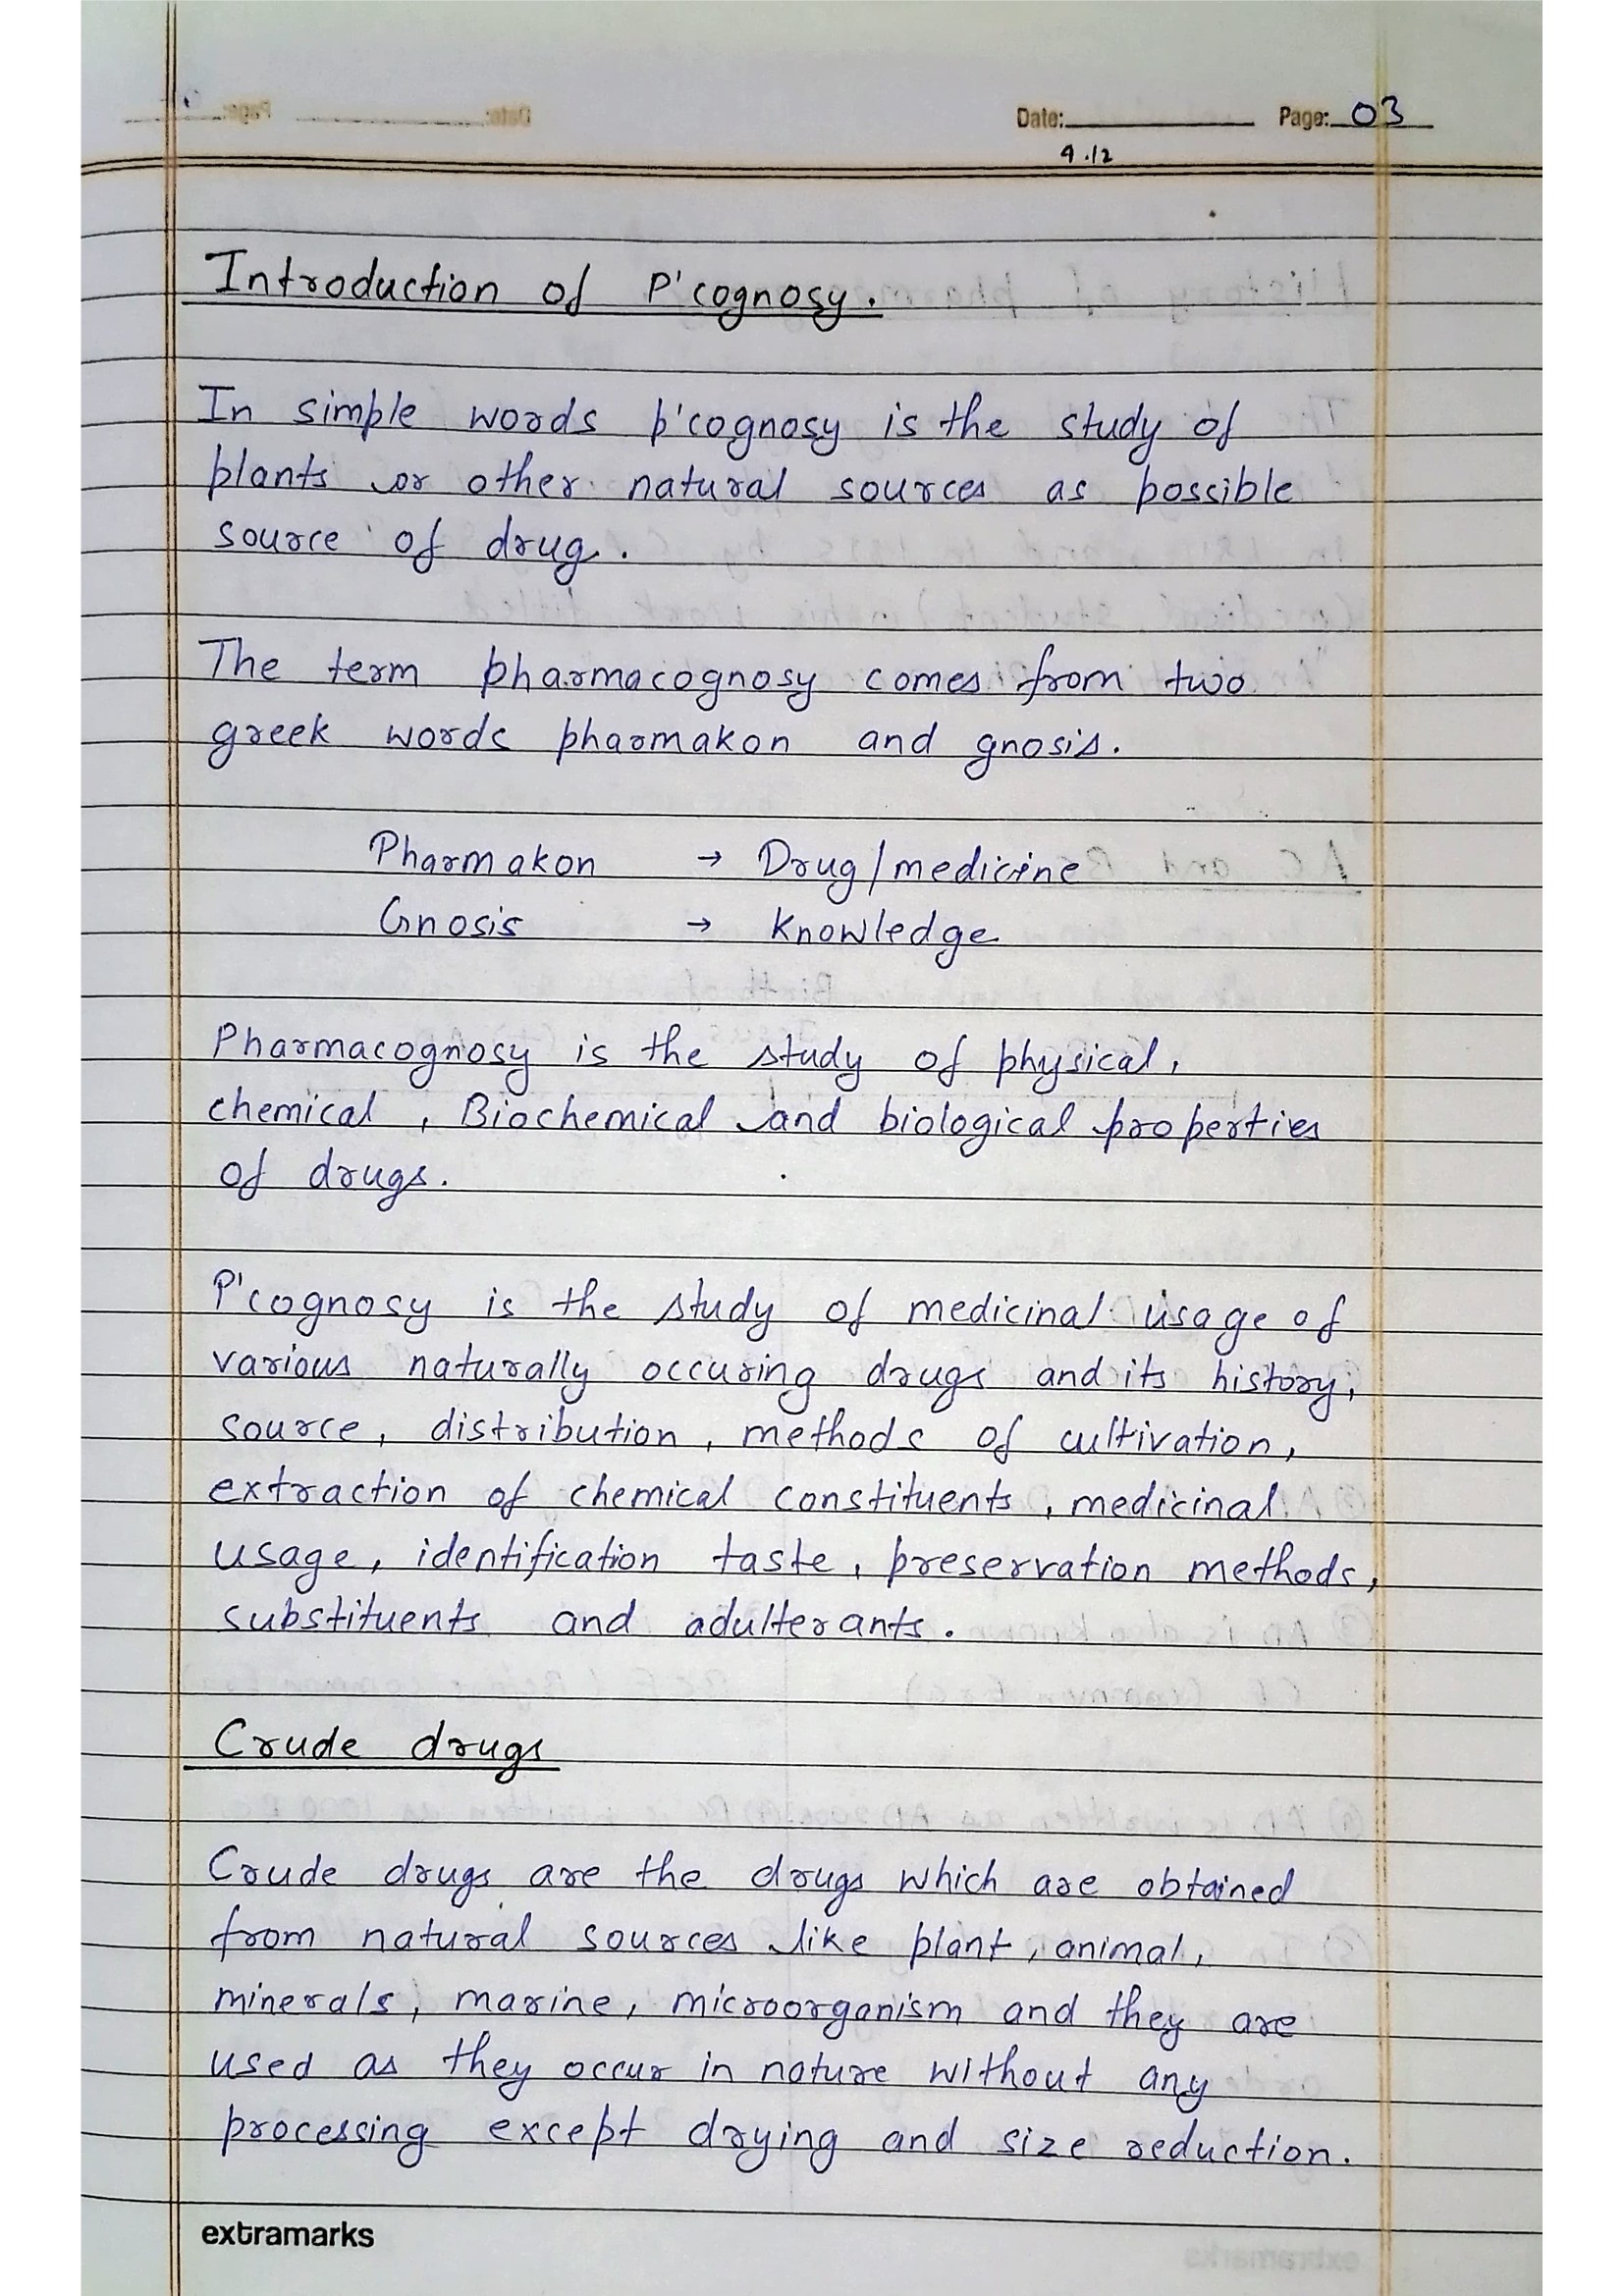 Date: Page: 03
9.12
Introduction of P'cognosy.
In simple words p'cognosy is the study of
plants or other natural sources as possible
source of drug.
The term pharmacognosy comes from two
greek words pharmakon and gnosis.
Pharmakon → Drug/medicine
Gnosis → Knowledge
Pharmacognosy is the study of physical,
chemical, Biochemical and biological properties
of drugs.
P'cognosy is the study of medicinal usage of
various naturally occuring drugs and its history,
source, distribution, methods of cultivation,
extraction of chemical constituents, medicinal
usage, identification taste, preservation methods,
substituents and adulterants.
Crude drugs
Crude drugs are the drugs which are obtained
from natural sources like plant, animal,
minerals, marine, microorganism and they are
used as they occur in nature without any
processing except drying and size reduction.
extramarks